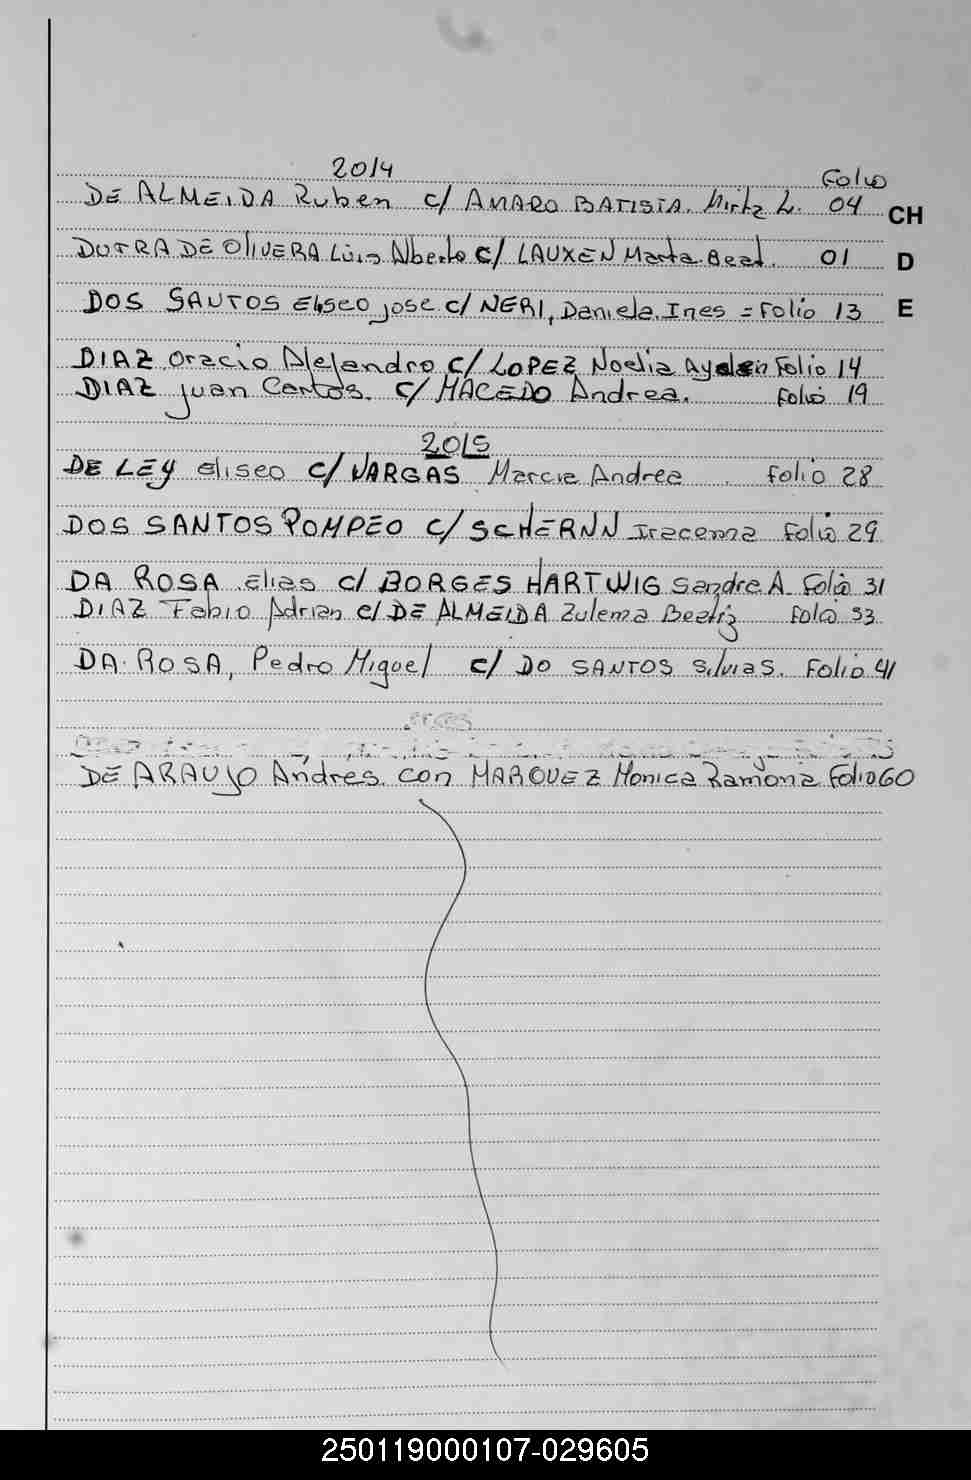 2014
Folio
DE ALMEIDA Ruben c/ AMARO BATISTA. Mirta L. 04 CH
DUTRA DE OLIVERA Luis Alberto c/ LAUXEN Marta Beat. 01 D
DOS SANTOS Eliseo jose c/ NERI, Daniela Ines = Folio 13 E
DIAZ Oracio Alejandro c/ LOPEZ Noelia Aylen Folio 14
DIAZ Juan Carlos. c/ MACEDO Andrea. Folio 19
2015
DE LEY eliseo c/ VARGAS Marcia Andrea Folio 28
DOS SANTOS POMPEO c/ SCHERNN Iracema Folio 29
DA ROSA elias c/ BORGES HARTWIG Sandra A. Folio 31
DIAZ Fabio Adrian c/ DE ALMEIDA Zulema Beatriz Folio 33
DA ROSA, Pedro Miguel c/ DO SANTOS Silvia S. Folio 41
DE ARAUJO Andres con MARQUEZ Monica Ramona Folio 60
250119000107-029605